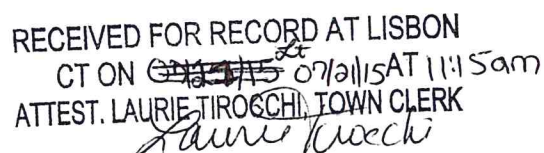 RECEIVED FOR RECORD AT LISBON
CT ON 07/21/15 AT 11:15am
ATTEST. LAURIE TIROCCHI, TOWN CLERK
Laurie Tirocchi